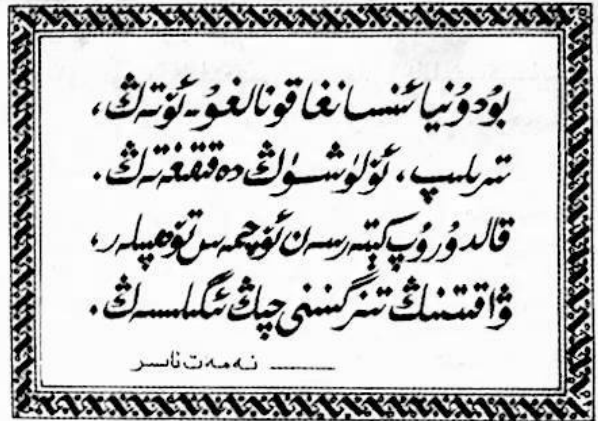 بۇ دۇنيا ئىنسانغا قونالغۇ - ئۆتەڭ،
تىرىلىپ، ئۆلۈشۈڭ دەققىغە تەڭ.
قالدۇرۇپ كېتەرسەن ئۆچمەس تۆھپىلەر،
ۋاقىتنىڭ تىزگىنىنى چىڭ ئىگىلىسەڭ.
—— نەمەت ناسىر